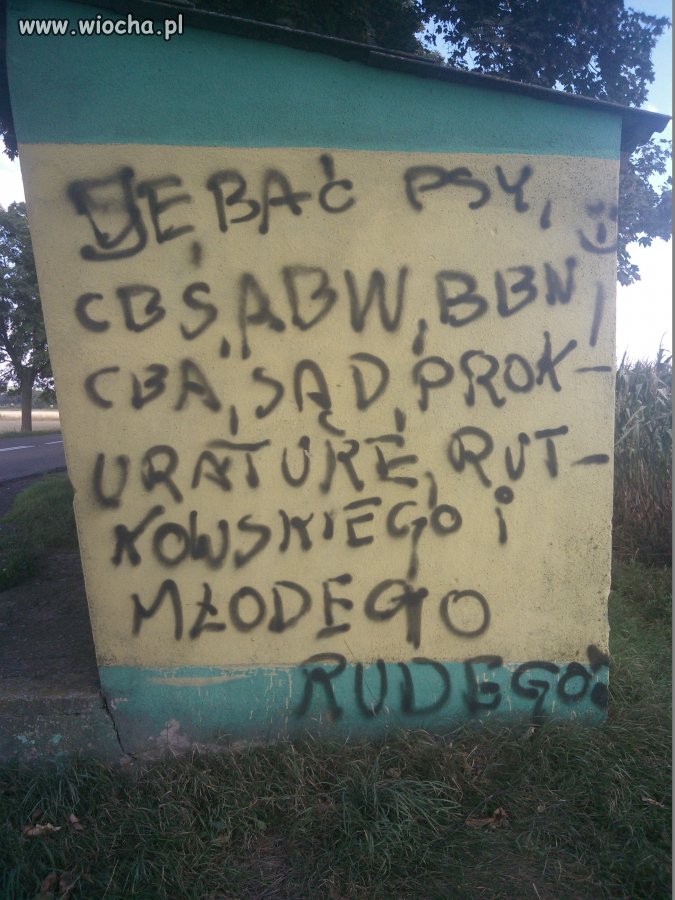 www.wiocha.pl
JEBAĆ PSY, :)
CBŚ, ABW, BBN,
CBA, SĄD, PROK-
URATURĘ, RUT-
KOWSKIEGO i
MŁODEGO
RUDEGO!